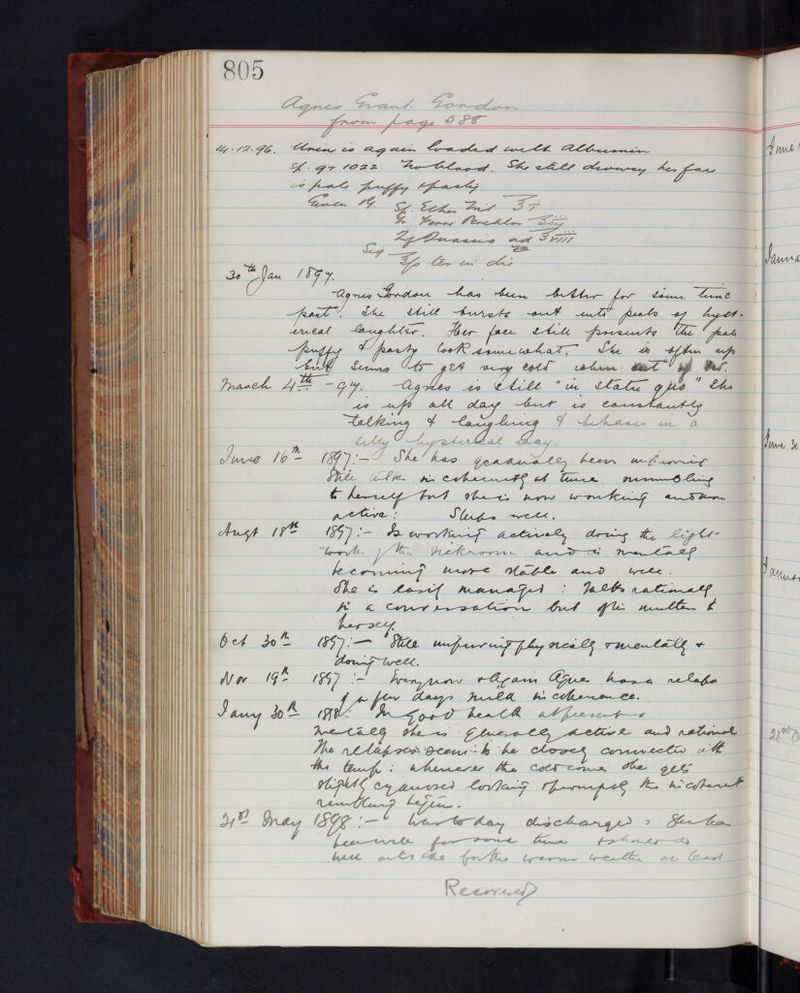 805
Agnes Grant Gordon
from page 588
14.12.96. Urine is again loaded with Albumin
Sp. gr 1022 No blood. She still drowsy her face
is pale puffy & pasty
Given
Sp. Ether Nit
ad
Sig ter in die
30th Jan 1897.
Agnes Gordon has been better for some time
past. She still bursts out into peals of hyst-
erical laughter. Her face still presents the pale
puffy & pasty look somewhat. She is often up
but seems to get very cold when out of bed.
March 4th - 97. Agnes is still "in statu quo" She
is up all day but is constantly
talking & laughing & behaves in a
silly hysterical way.
June 16th 1897:- She has gradually been improving
Still talks incoherently at times mumbling
to herself but she is now working and more
active: Sleeps well.
Augt 18th 1897:- Is working actively doing the light
work of the sickroom and is mentally
becoming more stable and well.
She is easily managed: Talks rationally
in a conversation but often mutters to
herself.
Oct 30th 1897:- Still improving physically & mentally &
doing well.
Nov 19th 1897:- Every now & again Agnes has a relapse
of a few days mild incoherence.
Jany 30th 1898: In good health at present &
mentally she is generally active and rational
The relapses seem to be closely connected with
the temp: whenever the cold comes she gets
slightly cyanosed looking & promptly the incoherent
rambling begins.
31st May 1898:- Was today discharged: She has
been well for some time & should do
well outside for the warm weather at least
Recovered
June
Janua
June 30
Januar
28th